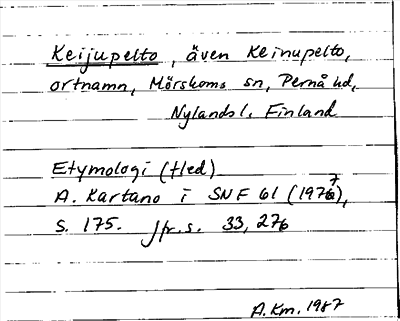 Keijupelto, även Keinupelto,
ortnamn, Mörskoms sn, Pernå hd,
Nylands l. Finland
Etymologi (fled)
A. Kartano i SNF 61 (1977),
s. 175. Jfr. s. 33, 276
A.Km. 1987